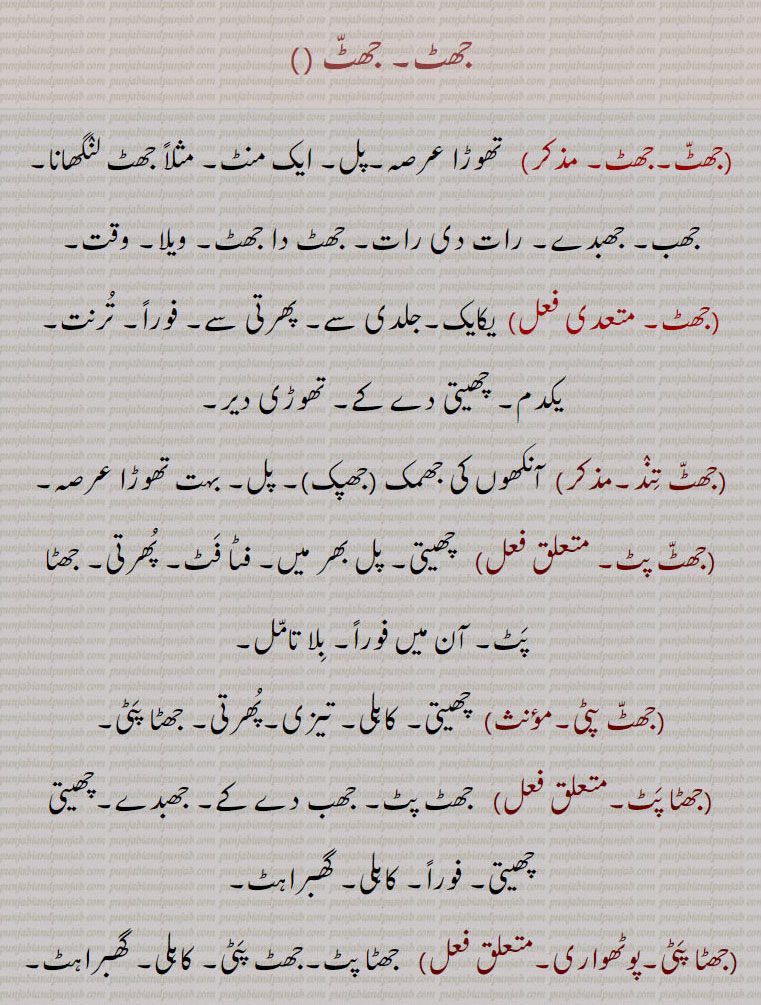 جھٹ۔ جھٹّ ()
(جھٹّ۔جھٹ۔ مذکر) تھوڑا عرصہ۔پل۔ ایک منٹ۔ مثلاً جھٹ لنگھانا۔
جھب۔ جھبدے۔ رات دی رات۔ جھٹ دا جھٹ۔ ویلا۔ وقت۔
(جھٹ۔ متعدی فعل) یکایک۔جلدی سے۔ پھرتی سے۔ فوراً۔ تُرنت۔
یکدم۔ چھیتی دے کے۔ تھوڑی دیر۔
(جھٹّ تِنْد۔مذکر) آنکھوں کی جھمک (جھپک)۔ پل۔ بہت تھوڑا عرصہ۔
(جھٹّ پٹ۔ متعلق فعل) چھیتی۔ پل بھر میں۔ فٹا فَٹ۔ پُھرتی۔ جھٹا
پَٹ۔ آن میں فوراً۔ بِلا تامّل۔
(جھٹّ پٹی۔مؤنث) چھیتی۔ کاہلی۔ تیزی۔پُھرتی۔ جھٹا پَٹی۔
(جھٹا پَٹ۔متعلق فعل) جھٹ پٹ۔ جھب دے کے۔ جھبدے۔چھیتی
چھیتی۔ فوراً۔ کاہلی۔ گھبراہٹ۔
(جھٹا پَٹی۔پوٹھواری۔متعلق فعل) جھٹا پٹ۔جھٹ پَٹی۔ کاہلی۔ گھبراہٹ۔